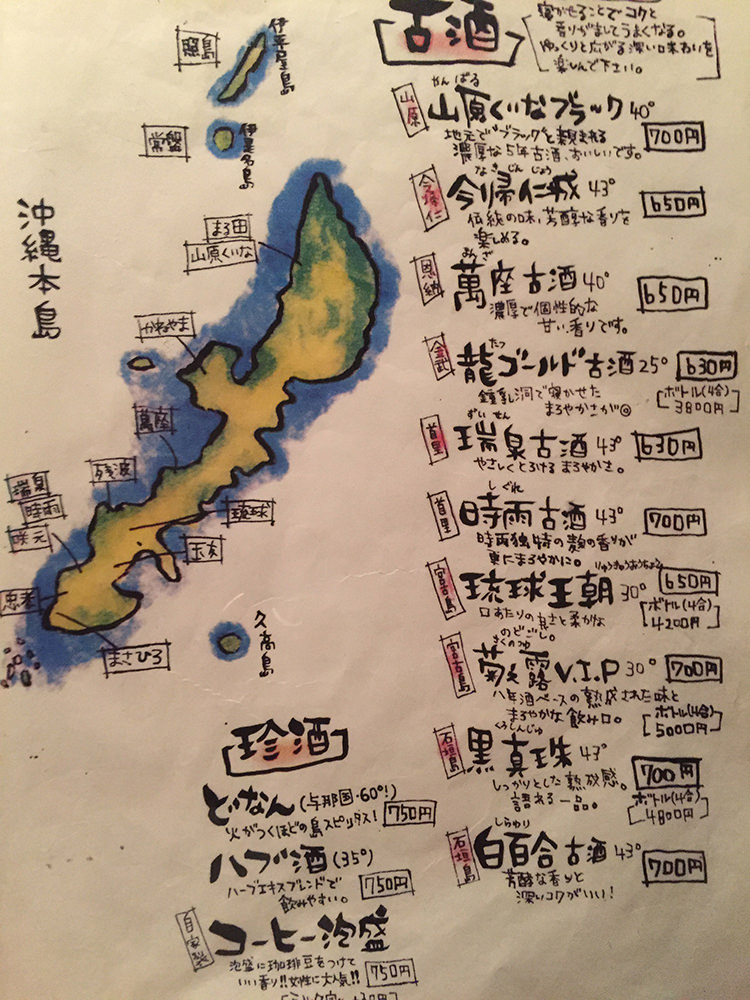 古酒
寝かせることでコクと
香りがましてうまくなる。
ゆっくりと広がる深い味わいを
楽しんで下さい。
山原
やんばる
山原くいなブラック 40°
700円
地元で"ブラック"と親まれる
濃厚な5年古酒、おいしいです。
今帰仁
なきじんじょう
今帰仁城 43°
650円
伝統の味、芳醇な香りを
楽しめる。
恩納
まんざ
萬座古酒 40°
650円
濃厚で個性的な
甘い香りです。
金武
たつ
龍ゴールド古酒 25°
630円
鍾乳洞で寝かせた
まろやかさが◎
ボトル(4合)
3800円
首里
ずいせん
瑞泉古酒 43°
630円
やさしくとろける まろやかさ。
首里
しぐれ
時雨古酒 43°
700円
時雨独特の麹の香りが
更にまろやかに。
宮古島
りゅうきゅうおうちょう
琉球王朝 30°
650円
口あたりの良さと柔かな
のどごし。
ボトル(4合)
4200円
宮古島
きくのつゆ
菊之露V.I.P 30°
700円
八年酒ベースの熟成された味と
まろやかな飲み口。
ボトル(4合)
5000円
石垣島
くろしんじゅ
黒真珠 43°
700円
しっかりとした熟成感。
語れる一品。
ボトル(4合)
4800円
石垣島
しらゆり
白百合古酒 43°
700円
芳醇な香りと
深いコクがいい!
沖縄本島
照島
伊平屋島
常盤
伊是名島
まる田
山原くいな
かねやま
萬座
残波
瑞泉
時雨
咲元
忠孝
琉球
玉友
まさひろ
久高島
珍酒
どなん(与那国・60°!)
750円
火がつくほどの島スピリタス!
ハブ酒(35°)
750円
ハーブエキスブレンドで
飲みやすい。
自家製
コーヒー泡盛
泡盛に珈琲豆をつけて
いい香り!!女性に大人気!!
750円